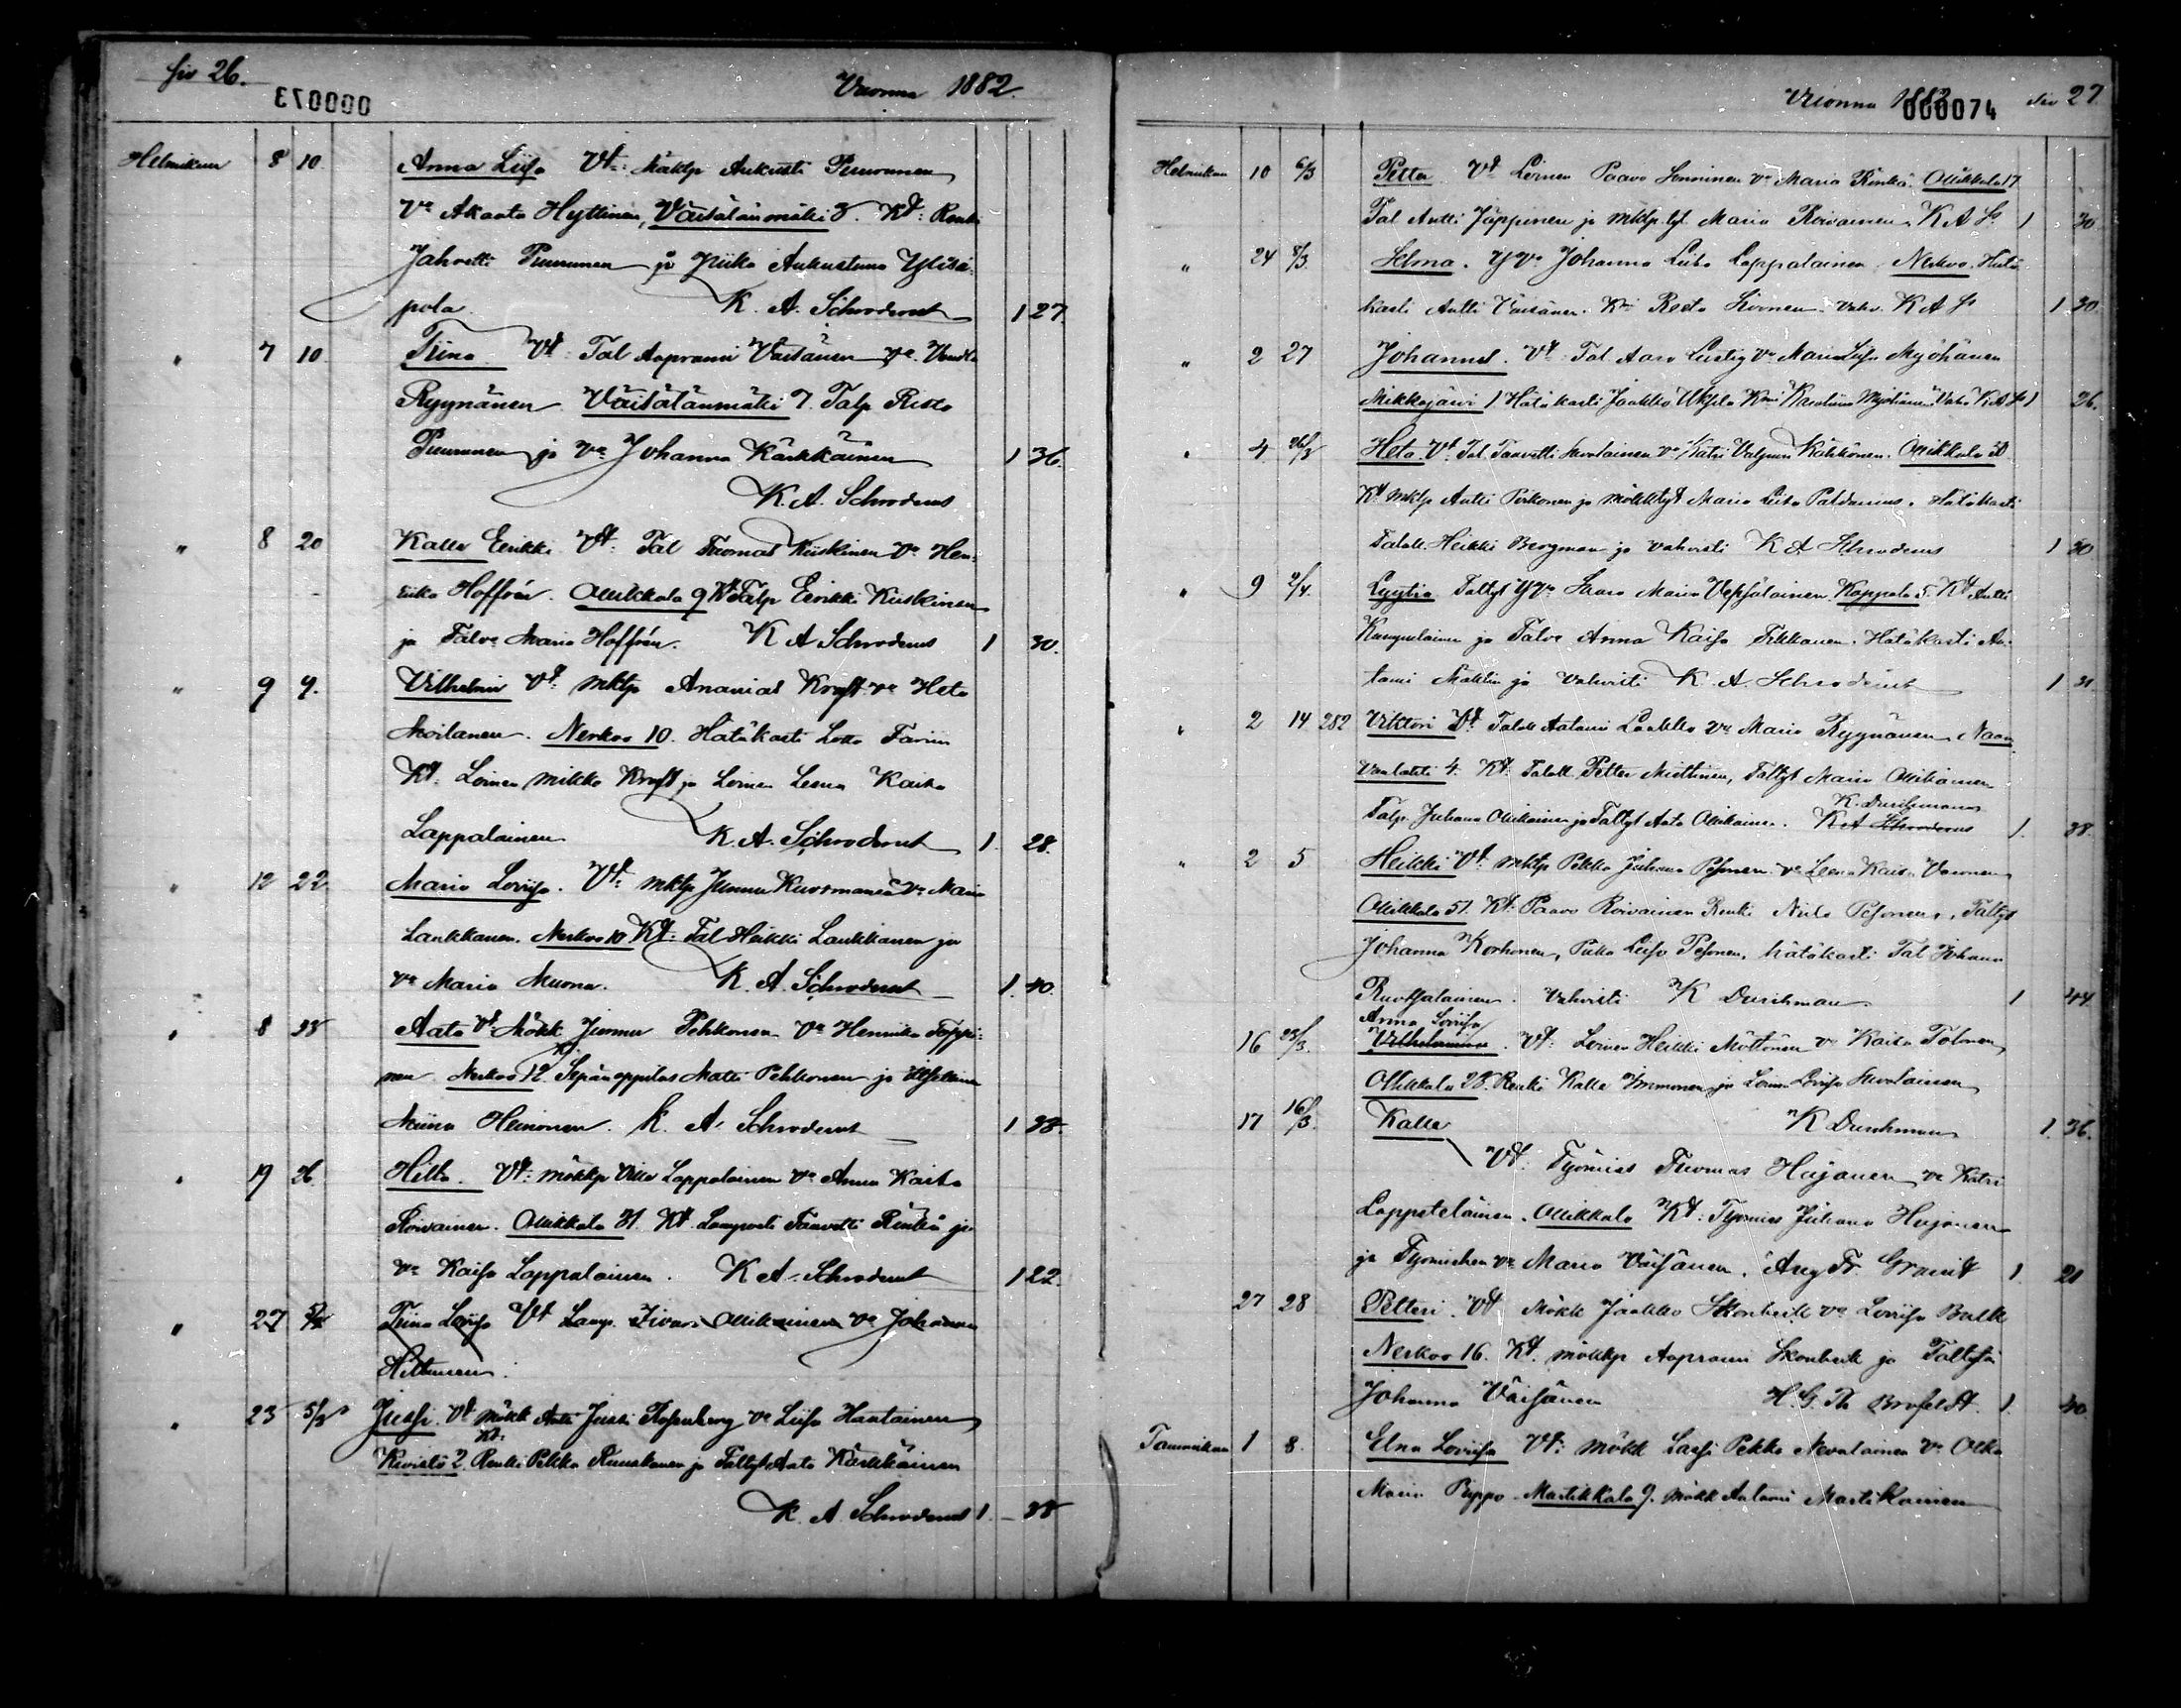 siv 26.
000073
Vuonna 1882.
Helmikuu 8 10. Anna Liisa Vt: Mäklp Aukusti Puurunen
Va Akaata Hyttinen, Väisälänmäki 3. Kt: Renki
Jahvetti Puurunen ja Piika Aukustuna Ylisä-
pola. K. A. Schroderus 1 27.
" 7 10. Tiina Vt: Tal Aaprami Väisänen va
Ryynänen Väisälänmäki 7. Talp Risto
Puurunen ja va Johanna Kärkkäinen 1 36.
K. A. Schroderus
" 8 20 Kalle Eerikki Vt: Tal Tuomas Kiiskinen Va Hen-
riika Hoffrén. Ollikkala 9 Kt Talp Eerikki Kiiskinen
ja Talva Maria Hoffrén. K A Schroderus 1 30.
" 9 9. Vilhelmi Vt: Mklp Ananias Kraft va Heta
Moilanen. Nerkoo 10. Hätäkasti Lotta
Kt: Loinen Mikko Kraft ja Loinen Leena Kaisa
Lappalainen K. A. Schroderus 1. 28.
" 12 22 Maria Loviisa. Vt: Mklp Junnu Kuosmanen Va Maria
Laukkanen. Nerkoo 10 Kt: Tal Heikki Laukkanen ja
va Maria Muona. K. A. Schroderus 1. 40.
" 8 Aato Vt Mökk Junnu Pehkonen Va Henriika Toppi-
nen Nerkoo 12. Kt: Sepänoppilas Matti Pehkonen ja Itsellinen
Miina Heinonen. K. A. Schroderus 1 38.
" 19 26. Hilta. Vt: Mökkp Ville Lappalainen va Anna Kaisa
Roivainen. Ollikkala 31. Kt. Lampuoti Taavetti ja
va Kaisa Lappalainen. K A. Schroderus 1 22
" 27 Tiina Loviisa Vt Lamp. Iivari Ollikainen va Johanna
Hiltunen.
" 23 5/3 Jussi. Vt Mökk Antti Jussi Rosenberg va Liisa Hautainen
Kt:
Kivistö 2. Renki Pekka Ruuskanen ja Taltyt Aato Kärkkäinen
K. A. Schroderus 1. 38
Vuonna 1882
000074
siv 27
Helmikuu 10 6/3 Petter Vt Loinen Paavo va Maria Ollikkala 17
Tal Antti Jäppinen ja Mklp tyt Maria Roivainen. K A Ss 1 30.
" 24 8/3. Selma. Y Va Johanna Liisa Lappalainen. Nerkoo. Hätä-
kasti Antti Väisänen. Kmi Reeta Sivonen. Vahv. K A Ss 1 30.
" 2 27 Johannes. Vt: Tal Aaro Lustig va Maria Liisa Myöhänen
Mikkajärvi 1 Hätäkasti Jaakko Kmi Karoliina Myöhänen Vahv K A Ss 1 26.
" 4. 26/3 Heta. Vt. Tal. Taavetti Nevalainen va Katri Valpuri Kähkönen. Ollikkala
Kt Mklp Antti Pirkonen ja Mökktyt Maria Liisa Paldanius. Hätäkasti
Talok. Heikki Bergman ja vahvisti K A Schroderus 1 30
" 9 2/4. Lyytia Taltyt Y Va Saara Maria Vepsäläinen. Kappala 5. Kt Antti
Kumpulainen ja Talva Anna Kaisa Tikkanen. Hätäkasti Aa-
tami ja vahvisti K. A. Schroderus 1 31
" 2 14 282 Viktori Vt Talok Aatami Laakko va Maria Ryynänen Naar-
vanlahti 4. Kt. Talok Petter Miettinen, Taltyt Maria Ollikainen
K. Durchman
Talp. Juhana Ollikainen ja Taltyt Aato Ollikainen. K A Schroderus 1. 38.
" 2 5 Heikki Vt. Mklp Pekka Juhana Pesonen va Leena Kaisa Varonen
Ollikkala 51. Kt: Paavo Roivainen Renki Niilo Pesonen, Taltyt
Johanna Korhonen, Piika Liisa Pesonen, hätäkasti Tal Johana
Ruotsalainen. Vahvisti K Durchman 1 44
Anna Loviisa
16 23/3. Vilhelmiina. Vt: Loinen Heikki Möttönen va Kaisa Tolonen
Ollikkala 28. Renki Kalle Immonen ja Loinen Loviisa Nevalainen
K Durchman 1. 36.
17 16/3. Kalle
Vt. Työmies Tuomas Hujanen va Katri
Lappeteläinen. Ollikkala Kt: Työmies Juhana Hujanen
ja Työmiehen va Maria Väisänen. Aug Fr Granit 1. 21
27 28 Petteri. Vt Mökk Jaakko Skonberk va Loviisa Balk
Nerkoo 16. Kt. Mökkp Aaprami Skonberk ja Taltytär
Johanna Väisänen H. G. Th Brofeldt. 1. 40
Tammikuu 1 8. Elna Loviisa Vt: Mökk Lassi Pekka Nevalainen va Olka
Maria Puppo. Martikkala 9. Mökk Aatami Martikainen